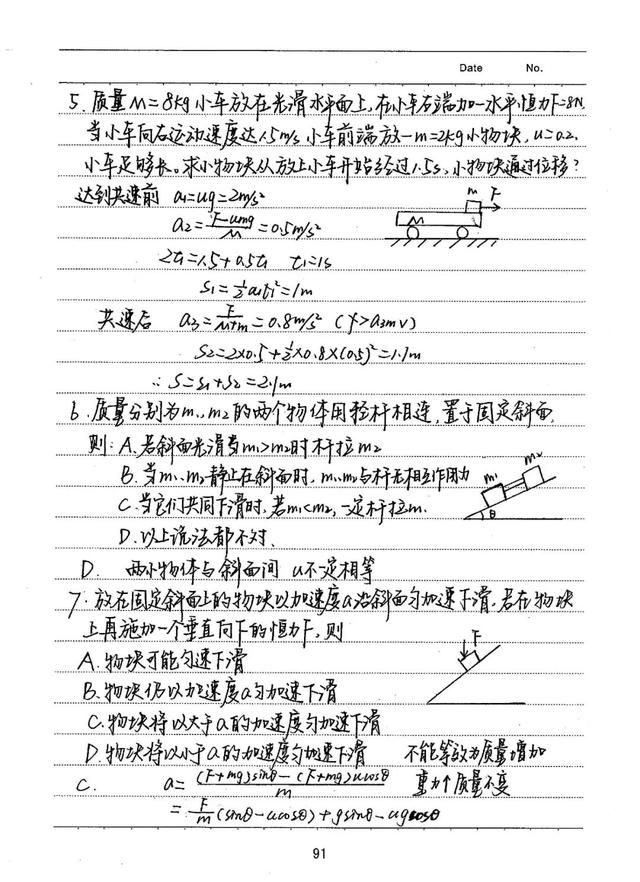 Date No.
5. 质量M=8kg小车放在光滑水平面上,在小车右端加一水平恒力F=8N.
当小车向右运动速度达1.5m/s,小车前端放一m=2kg小物块,u=0.2.
小车足够长。求小物块从放上小车开始经过1.5s,小物块通过位移?
达到共速前 a₁=ug=2m/s²
m F
a₂=(F-umg)/M=0.5m/s²
M
2t₁=1.5+0.5t₁ t₁=1s
S₁=½a₁t₁²=1m
共速后 a₃=F/(M+m)=0.8m/s² (f>a₃m√)
S₂=2×0.5+½×0.8×(0.5)²=1.1m
∴ S=S₁+S₂=2.1m
6. 质量分别为m₁、m₂的两个物体用轻杆相连,置于固定斜面,
则:A.若斜面光滑当m₁>m₂时杆拉m₂
B.当m₁、m₂静止在斜面时,m₁、m₂与杆无相互作用力
m₁ m₂
C.当它们共同下滑时,若m₁<m₂,一定杆拉m₁
θ
D.以上说法都不对.
D. 两小物体与斜面间 u不一定相等
7. 放在固定斜面上的物块以加速度a沿斜面匀加速下滑,若在物块
上再施加一个垂直向下的恒力F,则
F
A.物块可能匀速下滑
B.物块仍以加速度a匀加速下滑
C.物块将以大于a的加速度匀加速下滑
D.物块将以小于a的加速度匀加速下滑 不能等效为质量增加
C. a=((F+mg)sinθ-(F+mg)ucosθ)/m 重力个质量不变
=F/m(sinθ-ucosθ)+gsinθ-ugcosθ
91